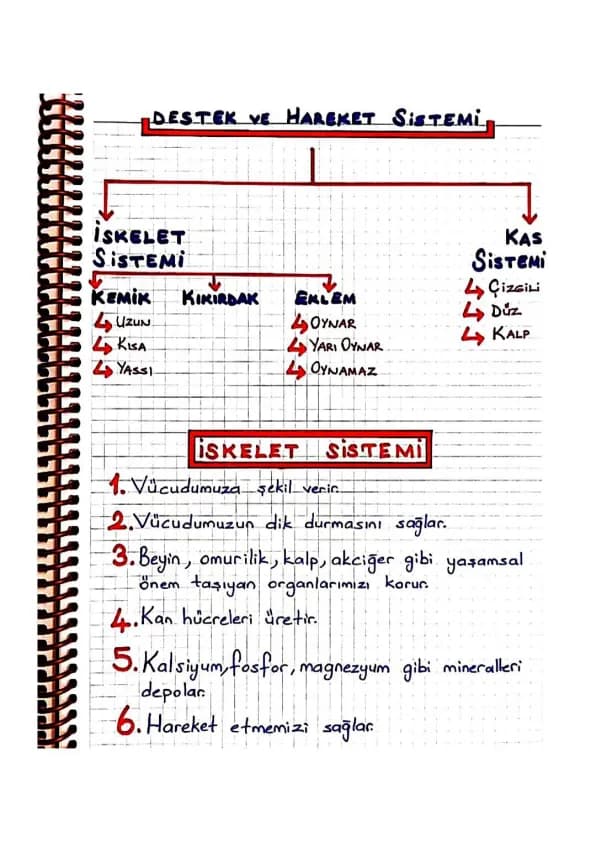 DESTEK VE HAREKET SİSTEMİ
İSKELET
SİSTEMİ
KAS
SİSTEMİ
KEMİK KIKIRDAK EKLEM
UZUN
KISA
YASSI
OYNAR
YARI OYNAR
OYNAMAZ
ÇİZGİLİ
DÜZ
KALP
İSKELET SİSTEMİ
1. Vücudumuza şekil verir.
2. Vücudumuzun dik durmasını sağlar.
3. Beyin, omurilik, kalp, akciğer gibi yaşamsal
önem taşıyan organlarımızı korur.
4. Kan hücreleri üretir.
5. Kalsiyum, fosfor, magnezyum gibi mineralleri
depolar.
6. Hareket etmemizi sağlar.